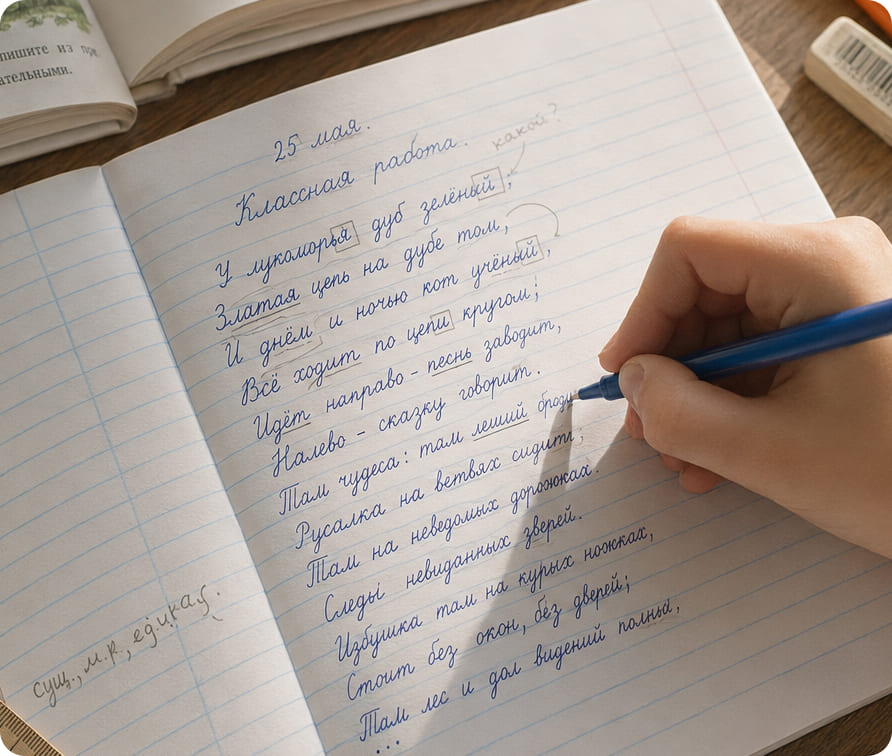 пишите из пре
ательными.
25 мая.
Классная работа.
какой?
У лукоморья дуб зелёный;
Златая цепь на дубе том,
И днём и ночью кот учёный,
Всё ходит по цепи кругом;
Идёт направо - песнь заводит,
Налево - сказку говорит.
Там чудеса: там леший броди
Русалка на ветвях сидит;
Там на неведомых дорожках.
Следы невиданных зверей.
Избушка там на курых ножках,
Стоит без окон, без дверей;
Там лес и дол видений полны,
...
сущ., м.р.,